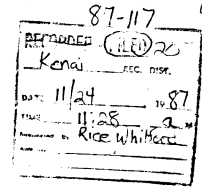 87-117
RECORDED FILED 20
Kenai REC. DIST.
DATE 11/24 19 87
TIME 11:28 a M
Requested by Rice Whitford